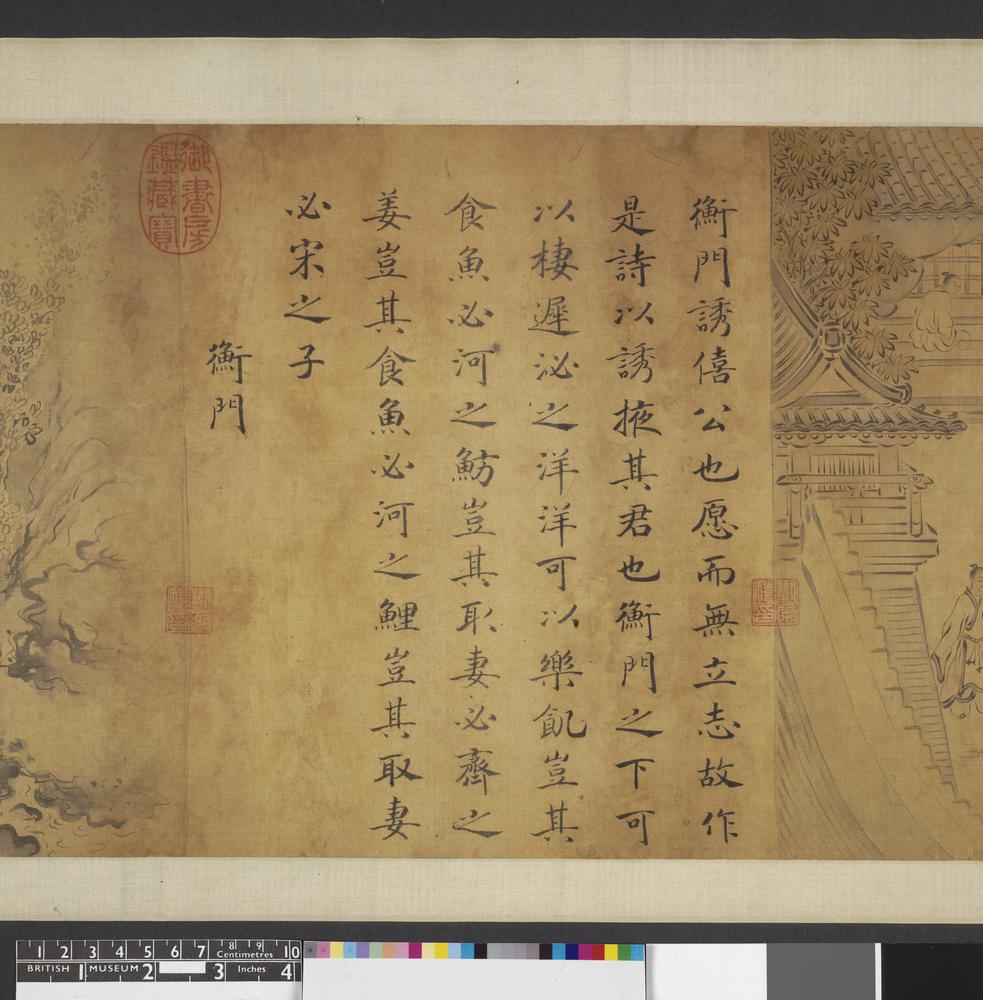 衡門誘僖公也愿而無立志故作
是詩以誘掖其君也衡門之下可
以棲遲泌之洋洋可以樂飢豈其
食魚必河之魴豈其取妻必齊之
姜豈其食魚必河之鯉豈其取妻
必宋之子
衡門
御書房
鑑藏寶
1 2 3 4 5 6 7 8 9 10
Centimetres
BRITISH 1 MUSEUM 2 3 Inches 4